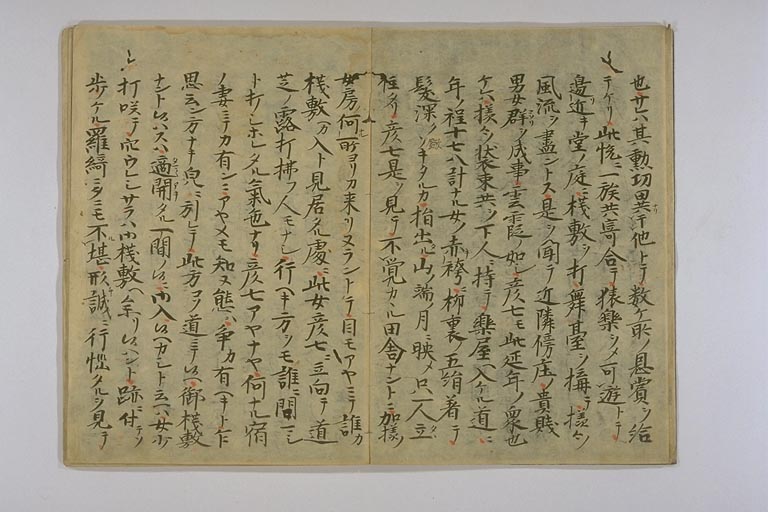 也サレハ其勲功異于他トテ数ケ所ノ恩賞ヲ給
テケリ此悦ニ一族共寄合テ猿樂シメ可遊トテ
邊近キ堂ノ庭ニ桟敷ヲ打舞臺ヲ構テ様々ノ
風流ヲ盡ントス是ヲ聞テ近隣傍庄ノ貴賤
男女群ヲ成事雲霞ノ如シ彦七モ此延年ノ衆也
ケレハ様々ノ装束共ヲ下人ニ持テ樂屋ヘ入ケル道ニ
年ノ程十七八計ナル女ノ赤袴ニ柳裏五絹著テ
髪深クソキタルカ指出タル山ノ端ノ月ニ映メ只一人立
タリ彦七是ヲ見テ不覚カヽル田舎ナントニ加様ノ
女房何所ヨリカ来リヌラントテ目モアヤニテ誰カ
桟敷ヘカ入ト見居タル處ニ此女彦七ニ立向テ道
芝ノ露打拂フ人モナシ行ヘキ方ヲモ誰ニ問マシ
ト打シホレタル氣色ナリ彦七アヤナヤ何ナル宿
ノ妻ニテカ有ンニアヤメモ知ヌ態ハ争カ有ヘキト乍
思云ン方ナキ皃ニ引レテ此方コソ道ニテ候ヘ御桟敷
ナント候ハスハ適開タル一間ノ候ニ御入候ヘカシト云ハ女少
打咲テ穴ウレシサラハ御桟敷ヘ余リ候ハント跡ニ付テソ
歩ケル羅綺ニタニモ不堪形誠ニ行悩タルヲ見テ